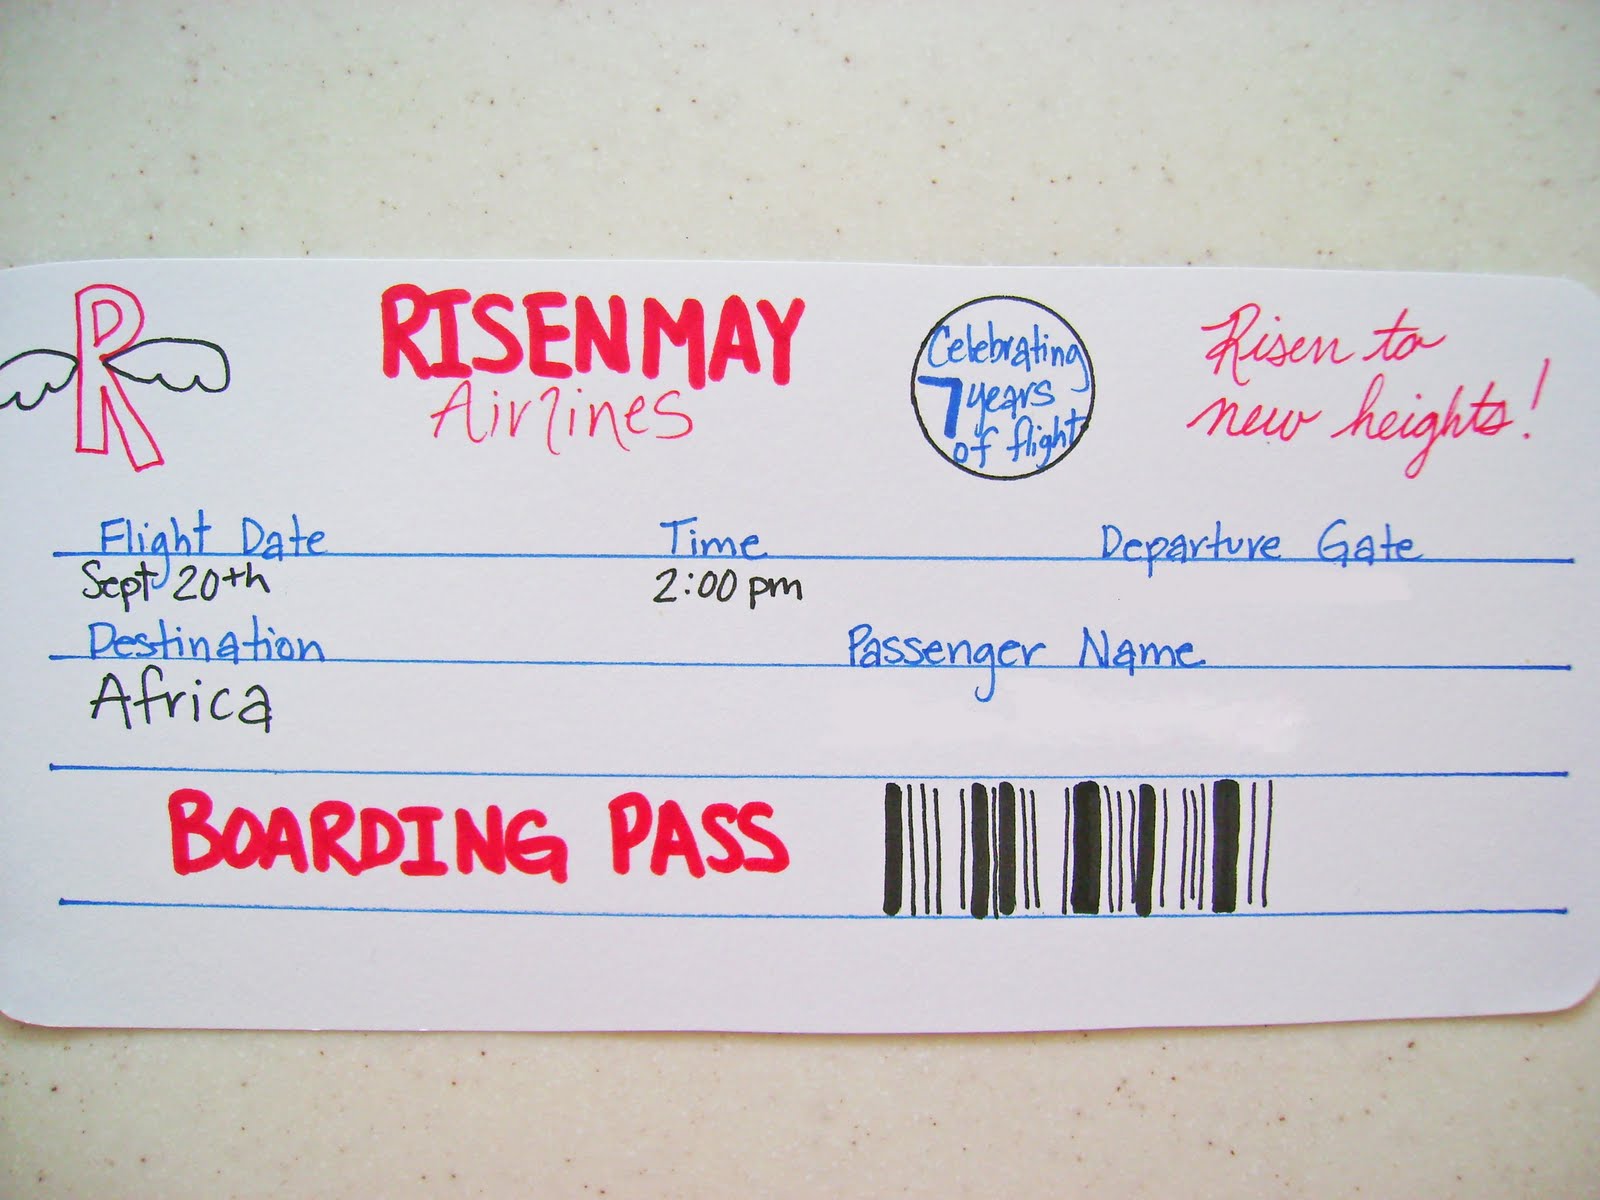 R
RISENMAY
Airlines
Celebrating
7 years
of flight
Risen to
new heights!
Flight Date Time Departure Gate
Sept 20th 2:00 pm
Destination Passenger Name
Africa
BOARDING PASS